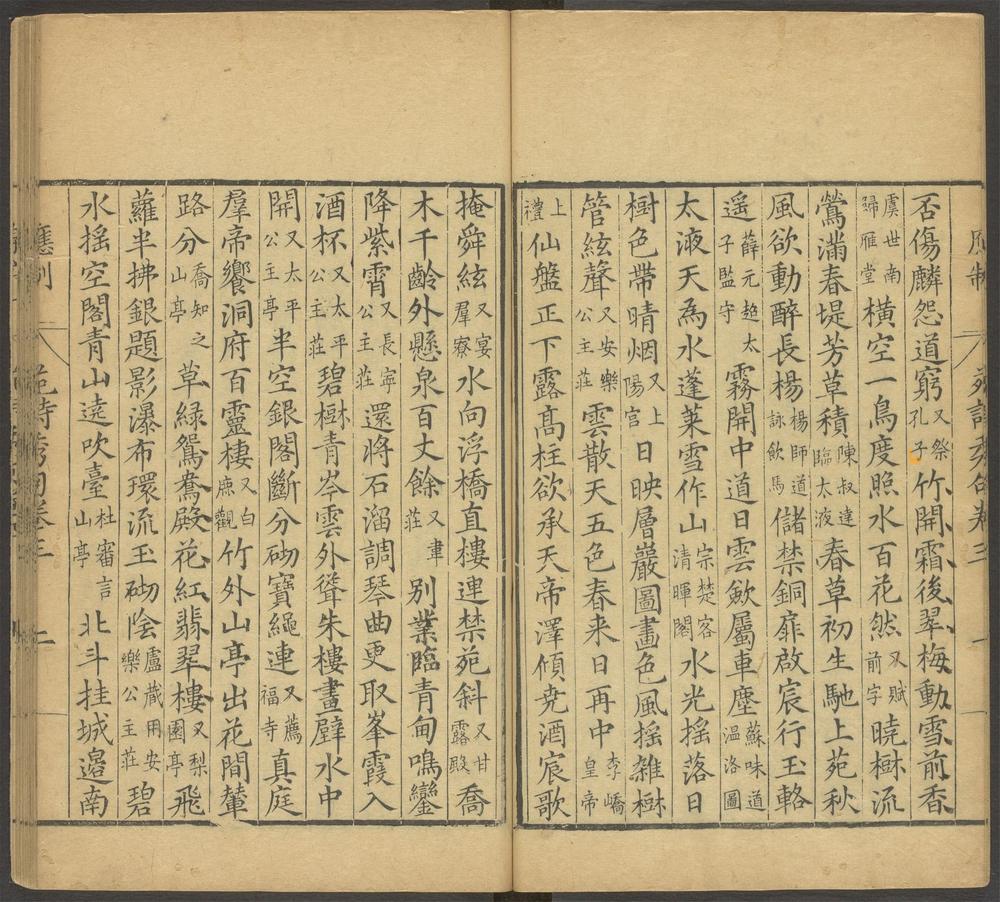 否傷麟怨道窮又祭孔子竹開霜後翠梅動雪前香
虞世南歸雁堂橫空一鳥度照水百花然又賦前字曉樹流
鶯滿春堤芳草積陳叔達臨太液春草初生馳上苑秋
風欲動醉長楊楊師道詠飲馬儲禁銅扉啟宸行玉輅
遥薛元超太子監守霧開中道日雲歛屬車塵蘇味道温洛圖
太液天為水蓬莱雪作山宗楚客清暉閣水光揺落日
樹色帶晴烟又上陽宫日映層巖圖畫色風揺雑樹
管絃聲又安樂公主莊雲散天五色春来日再中李嶠皇帝
上禮仙盤正下露髙柱欲承天帝澤傾尭酒宸歌
掩舜絃又宴羣寮水向浮橋直樓連禁苑斜又甘露殿喬
木千齡外懸泉百丈餘又韋莊别業臨青甸鳴鑾
降紫霄又長寧公主莊還將石溜調琴曲更取峯霞入
酒杯又太平公主莊碧樹青岑雲外聳朱樓畫壁水中
開又太平公主亭半空銀閣斷分砌寶繩連又薦福寺真庭
羣帝饗洞府百靈樓又白鹿觀竹外山亭出花間輦
路分喬知之山亭草緑鴛鴦殿花紅翡翠樓又梨園亭飛
蘿半拂銀題影瀑布環流玉砌隂盧蔵用安樂公主莊碧
水揺空閣青山遶吹臺杜審言山亭北斗挂城邉南
二